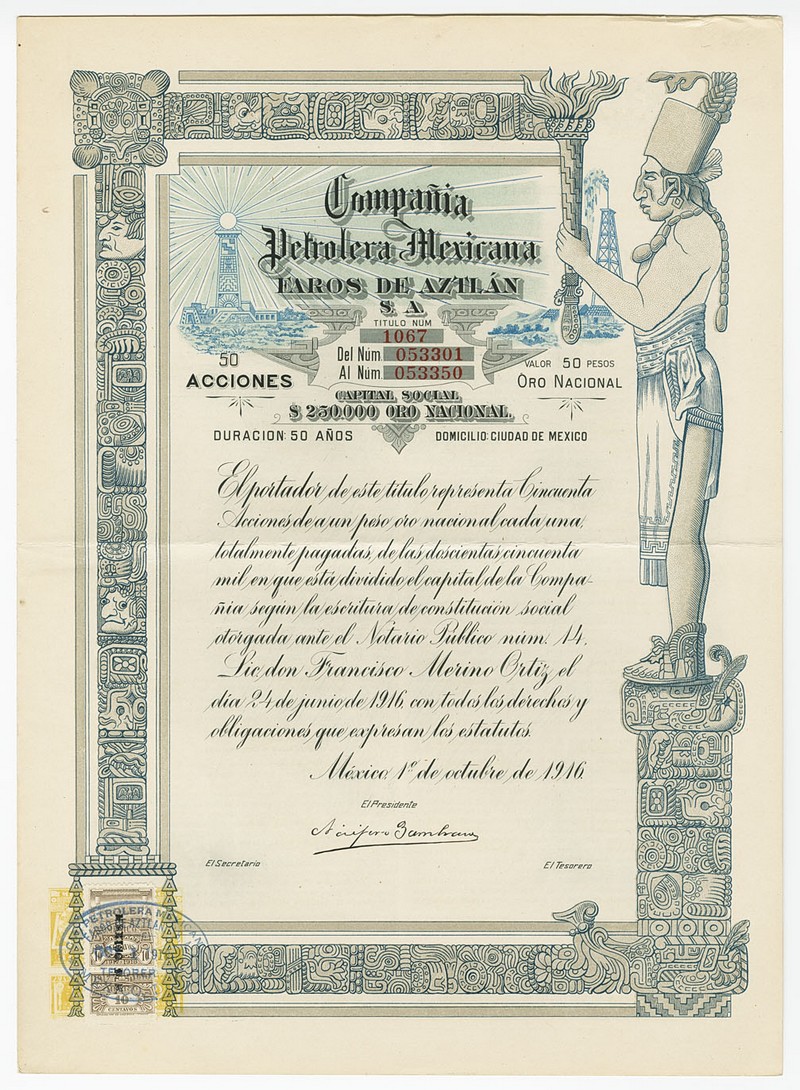 Compañia
Petrolera Mexicana
FAROS DE AZTLÁN
S. A.
TITULO NUM
1067
Del Núm. 053301
Al Núm. 053350
50
ACCIONES
VALOR 50 PESOS
ORO NACIONAL
CAPITAL SOCIAL
$ 250.000 ORO NACIONAL.
DURACION: 50 AÑOS
DOMICILIO: CIUDAD DE MEXICO
El portador de este titulo representa Cincuenta
Acciones de a un peso oro nacional cada una,
totalmente pagadas, de las doscientas cincuenta
mil en que está dividido el capital de la Compa-
ñia según la escritura de constitución social
otorgada ante el Notario Público núm. 14.
Lic. don Francisco Merino Ortiz el
dia 24 de junio de 1916, con todos los derechos y
obligaciones que expresan los estatutos.
México 1º de octubre de 1916.
El Presidente
El Secretario
El Tesorero
PETROLERA MEXICANA
10
CENTAVOS